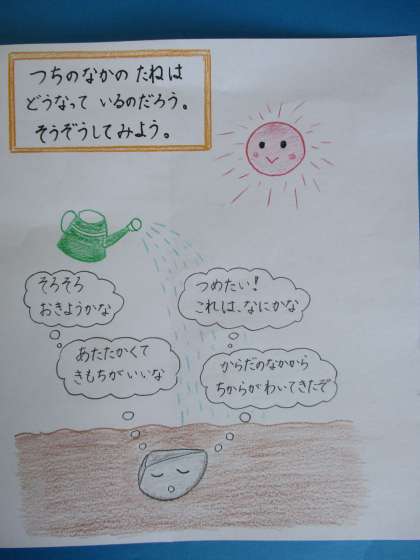 つちのなかの たねは
どうなって いるのだろう。
そうぞうしてみよう。
そろそろ
おきようかな
つめたい!
これは、なにかな
あたたかくて
きもちがいいな
からだのなかから
ちからがわいてきたぞ